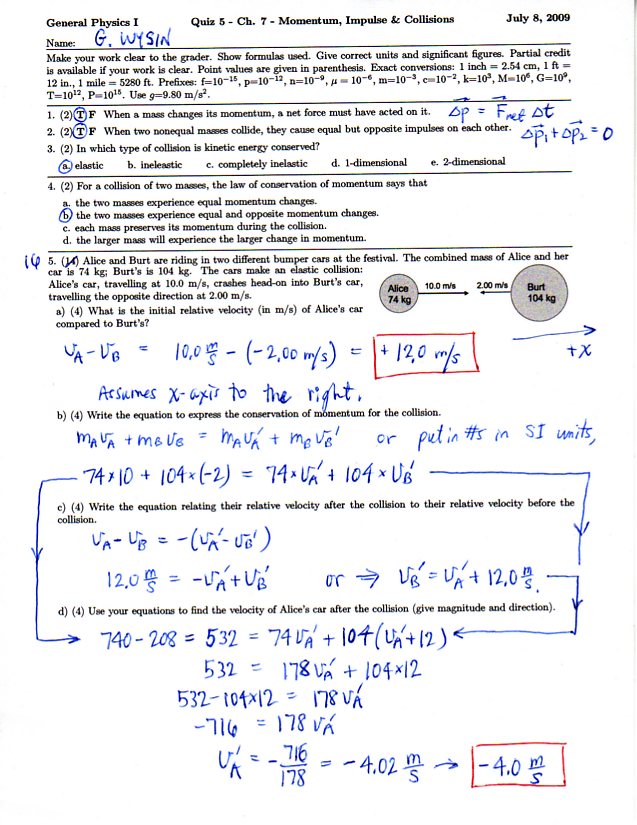 General Physics I Quiz 5 - Ch. 7 - Momentum, Impulse & Collisions July 8, 2009
Name: G. WYSIN
Make your work clear to the grader. Show formulas used. Give correct units and significant figures. Partial credit
is available if your work is clear. Point values are given in parenthesis. Exact conversions: 1 inch = 2.54 cm, 1 ft =
12 in., 1 mile = 5280 ft. Prefixes: f=10⁻¹⁵, p=10⁻¹², n=10⁻⁹, μ = 10⁻⁶, m=10⁻³, c=10⁻², k=10³, M=10⁶, G=10⁹,
T=10¹², P=10¹⁵. Use g=9.80 m/s².
1. (2) T F When a mass changes its momentum, a net force must have acted on it. Δp⃗ = F⃗net Δt
2. (2) T F When two nonequal masses collide, they cause equal but opposite impulses on each other. Δp⃗₁ + Δp⃗₂ = 0
3. (2) In which type of collision is kinetic energy conserved?
a. elastic b. ineleastic c. completely inelastic d. 1-dimensional e. 2-dimensional
4. (2) For a collision of two masses, the law of conservation of momentum says that
a. the two masses experience equal momentum changes.
b. the two masses experience equal and opposite momentum changes.
c. each mass preserves its momentum during the collision.
d. the larger mass will experience the larger change in momentum.
16 5. (14) Alice and Burt are riding in two different bumper cars at the festival. The combined mass of Alice and her
car is 74 kg; Burt's is 104 kg. The cars make an elastic collision:
Alice's car, travelling at 10.0 m/s, crashes head-on into Burt's car,
travelling the opposite direction at 2.00 m/s.
Alice 10.0 m/s 2.00 m/s Burt
74 kg 104 kg
a) (4) What is the initial relative velocity (in m/s) of Alice's car
compared to Burt's?
v_A - v_B = 10.0 m/s - (-2.00 m/s) = +12.0 m/s
+x
Assumes x-axis to the right.
b) (4) Write the equation to express the conservation of momentum for the collision.
m_A v_A + m_B v_B = m_A v_A' + m_B v_B' or put in #s in SI units,
74×10 + 104×(-2) = 74×v_A' + 104×v_B'
c) (4) Write the equation relating their relative velocity after the collision to their relative velocity before the
collision.
v_A - v_B = -(v_A' - v_B')
12.0 m/s = -v_A' + v_B' or ⇒ v_B' = v_A' + 12.0 m/s.
d) (4) Use your equations to find the velocity of Alice's car after the collision (give magnitude and direction).
740 - 208 = 532 = 74 v_A' + 104(v_A' + 12)
532 = 178 v_A' + 104×12
532 - 104×12 = 178 v_A'
-716 = 178 v_A'
v_A' = -716/178 = -4.02 m/s → -4.0 m/s